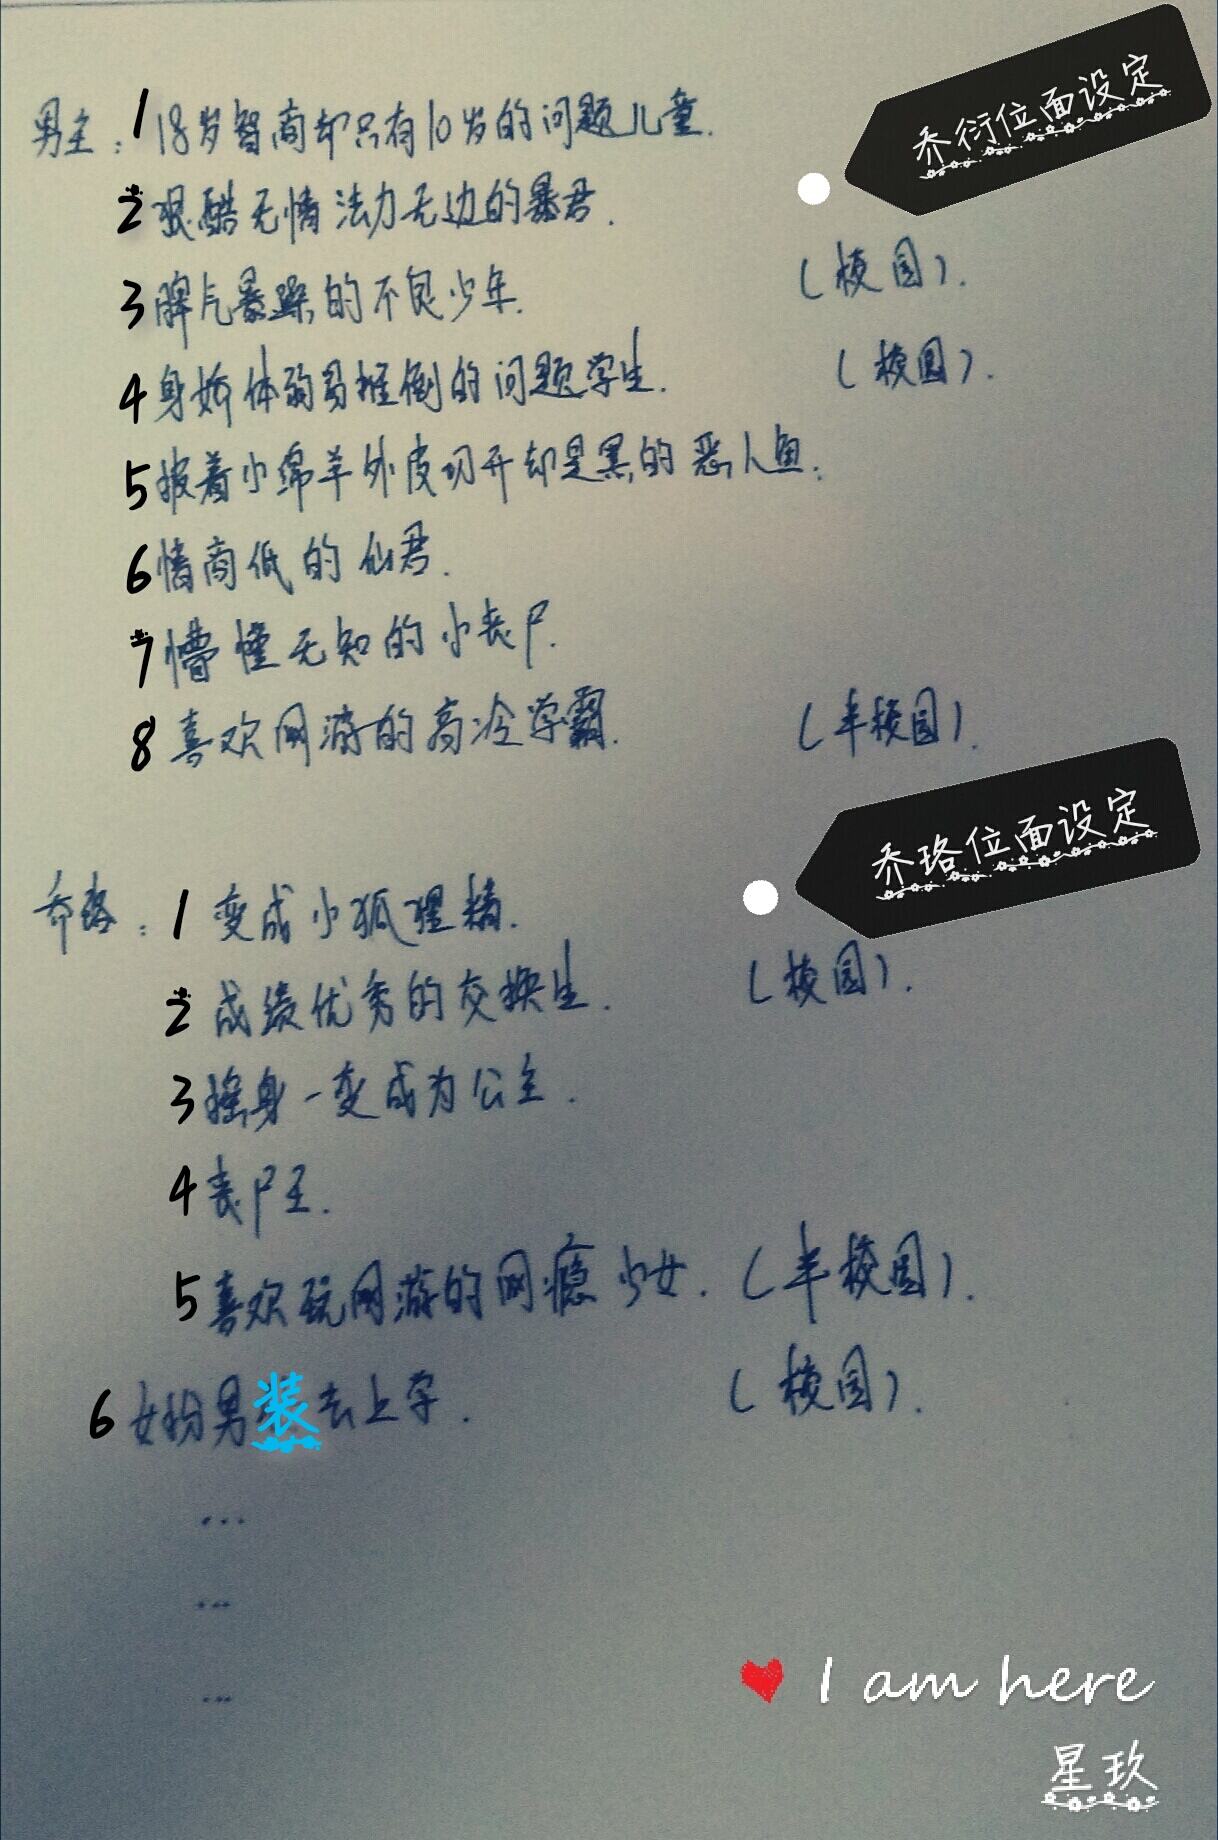 乔衍位面设定
男主：1 18岁智商却只有10岁的问题儿童.
2 狠酷无情法力无边的暴君.
3 脾气暴躁的不良少年. (校园).
4 身娇体弱易推倒的问题学生. (校园).
5 披着小绵羊外皮切开却是黑的恶人鱼.
6 情商低的仙君.
7 懵懂无知的小丧尸.
8 喜欢网游的高冷学霸. (半校园).
乔珞位面设定
乔珞：1 变成小狐狸精.
2 成绩优秀的交换生. (校园).
3 摇身一变成为公主.
4 丧尸王.
5 喜欢玩网游的网瘾少女. (半校园).
6 女扮男装去上学. (校园).
...
...
...
I am here
星玖